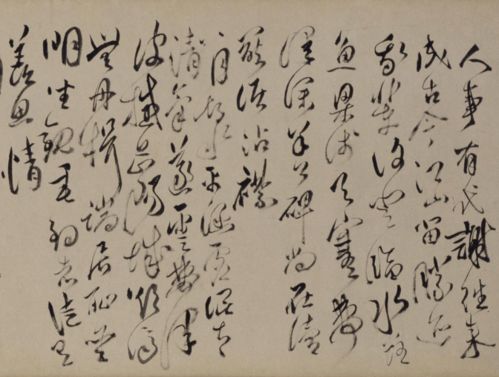 人事有代謝往來
成古今江山留勝迹
我輩復登臨水落
魚梁淺天寒夢
澤深羊公碑尚在讀
罷淚沾襟
八月湖水平涵虛混太
清氣蒸雲夢澤
波撼岳陽城欲濟
無舟楫端居恥聖
明坐觀垂釣者徒有
羨魚情